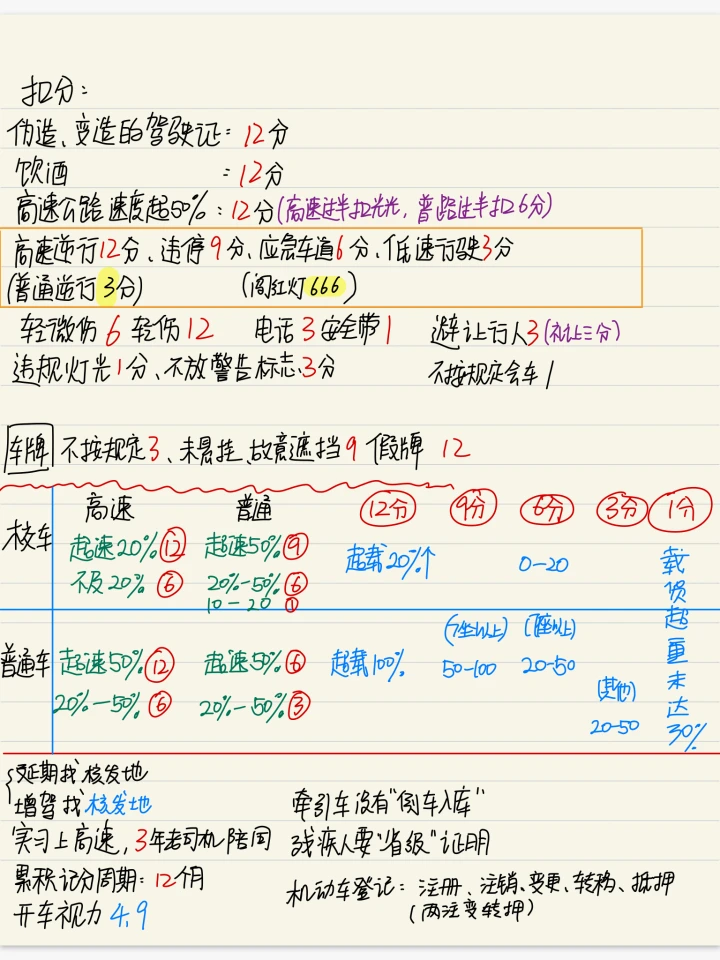 扣分：
伪造、变造的驾驶证：12分
饮酒：12分
高速公路速度超50%：12分(高速过半扣光光，普路过半扣6分)
高速逆行12分、违停9分、应急车道6分、低速行驶3分
(普通逆行3分) (闯红灯666)
轻微伤6 轻伤12 电话3 安全带1 避让行人3(礼让三分)
违规灯光1分、不放警告标志3分 不按规定会车1
车牌 不按规定3、未悬挂、故意遮挡9 假牌 12
高速 普通 12分 9分 6分 3分 1分
校车 超速20% 12 超速50% 9 超载20%↑ 0-20
不及20% 6 20%-50% 6
10-20 1
载货超重未达30%
(7坐以上) (7座以上)
普通车 超速50% 12 超速50% 6 超载100% 50-100 20-50
20%-50% 6 20%-50% 3 (其他)
20-50
延期找核发地
增驾找核发地 牵引车没有"倒车入库"
实习上高速，3年老司机陪同 残疾人要"省级"证明
累积记分周期：12个月 机动车登记：注册、注销、变更、转移、抵押
开车视力4.9 (两注变转押)